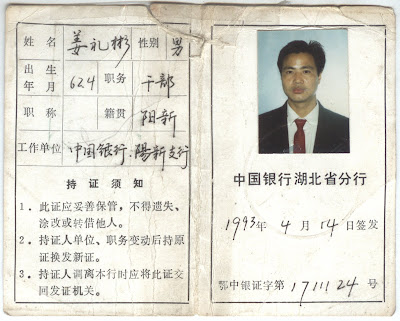 姓名 姜礼彬 性别 男
出生年月 62.4 职务 干部
职称 籍贯 阳新
工作单位 中国银行.陽新支行
持证须知
1. 此证应妥善保管，不得遗失、
涂改或转借他人。
2. 持证人单位、职务变动后持原
证换发新证。
3. 持证人调离本行时应将此证交
回发证机关。
中国银行湖北省分行
1993年 4月 14日签发
鄂中银证字第 171124 号